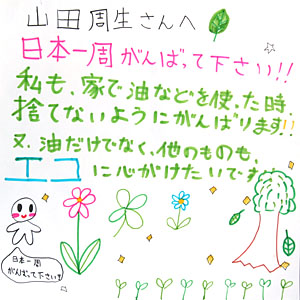 山田周生さんへ
日本一周がんばって下さい!!
私も、家で油などを使った時、
捨てないようにがんばります!!
又、油だけでなく、他のものも、
エコに心がけたいです
日本一周
がんばって下さい!!